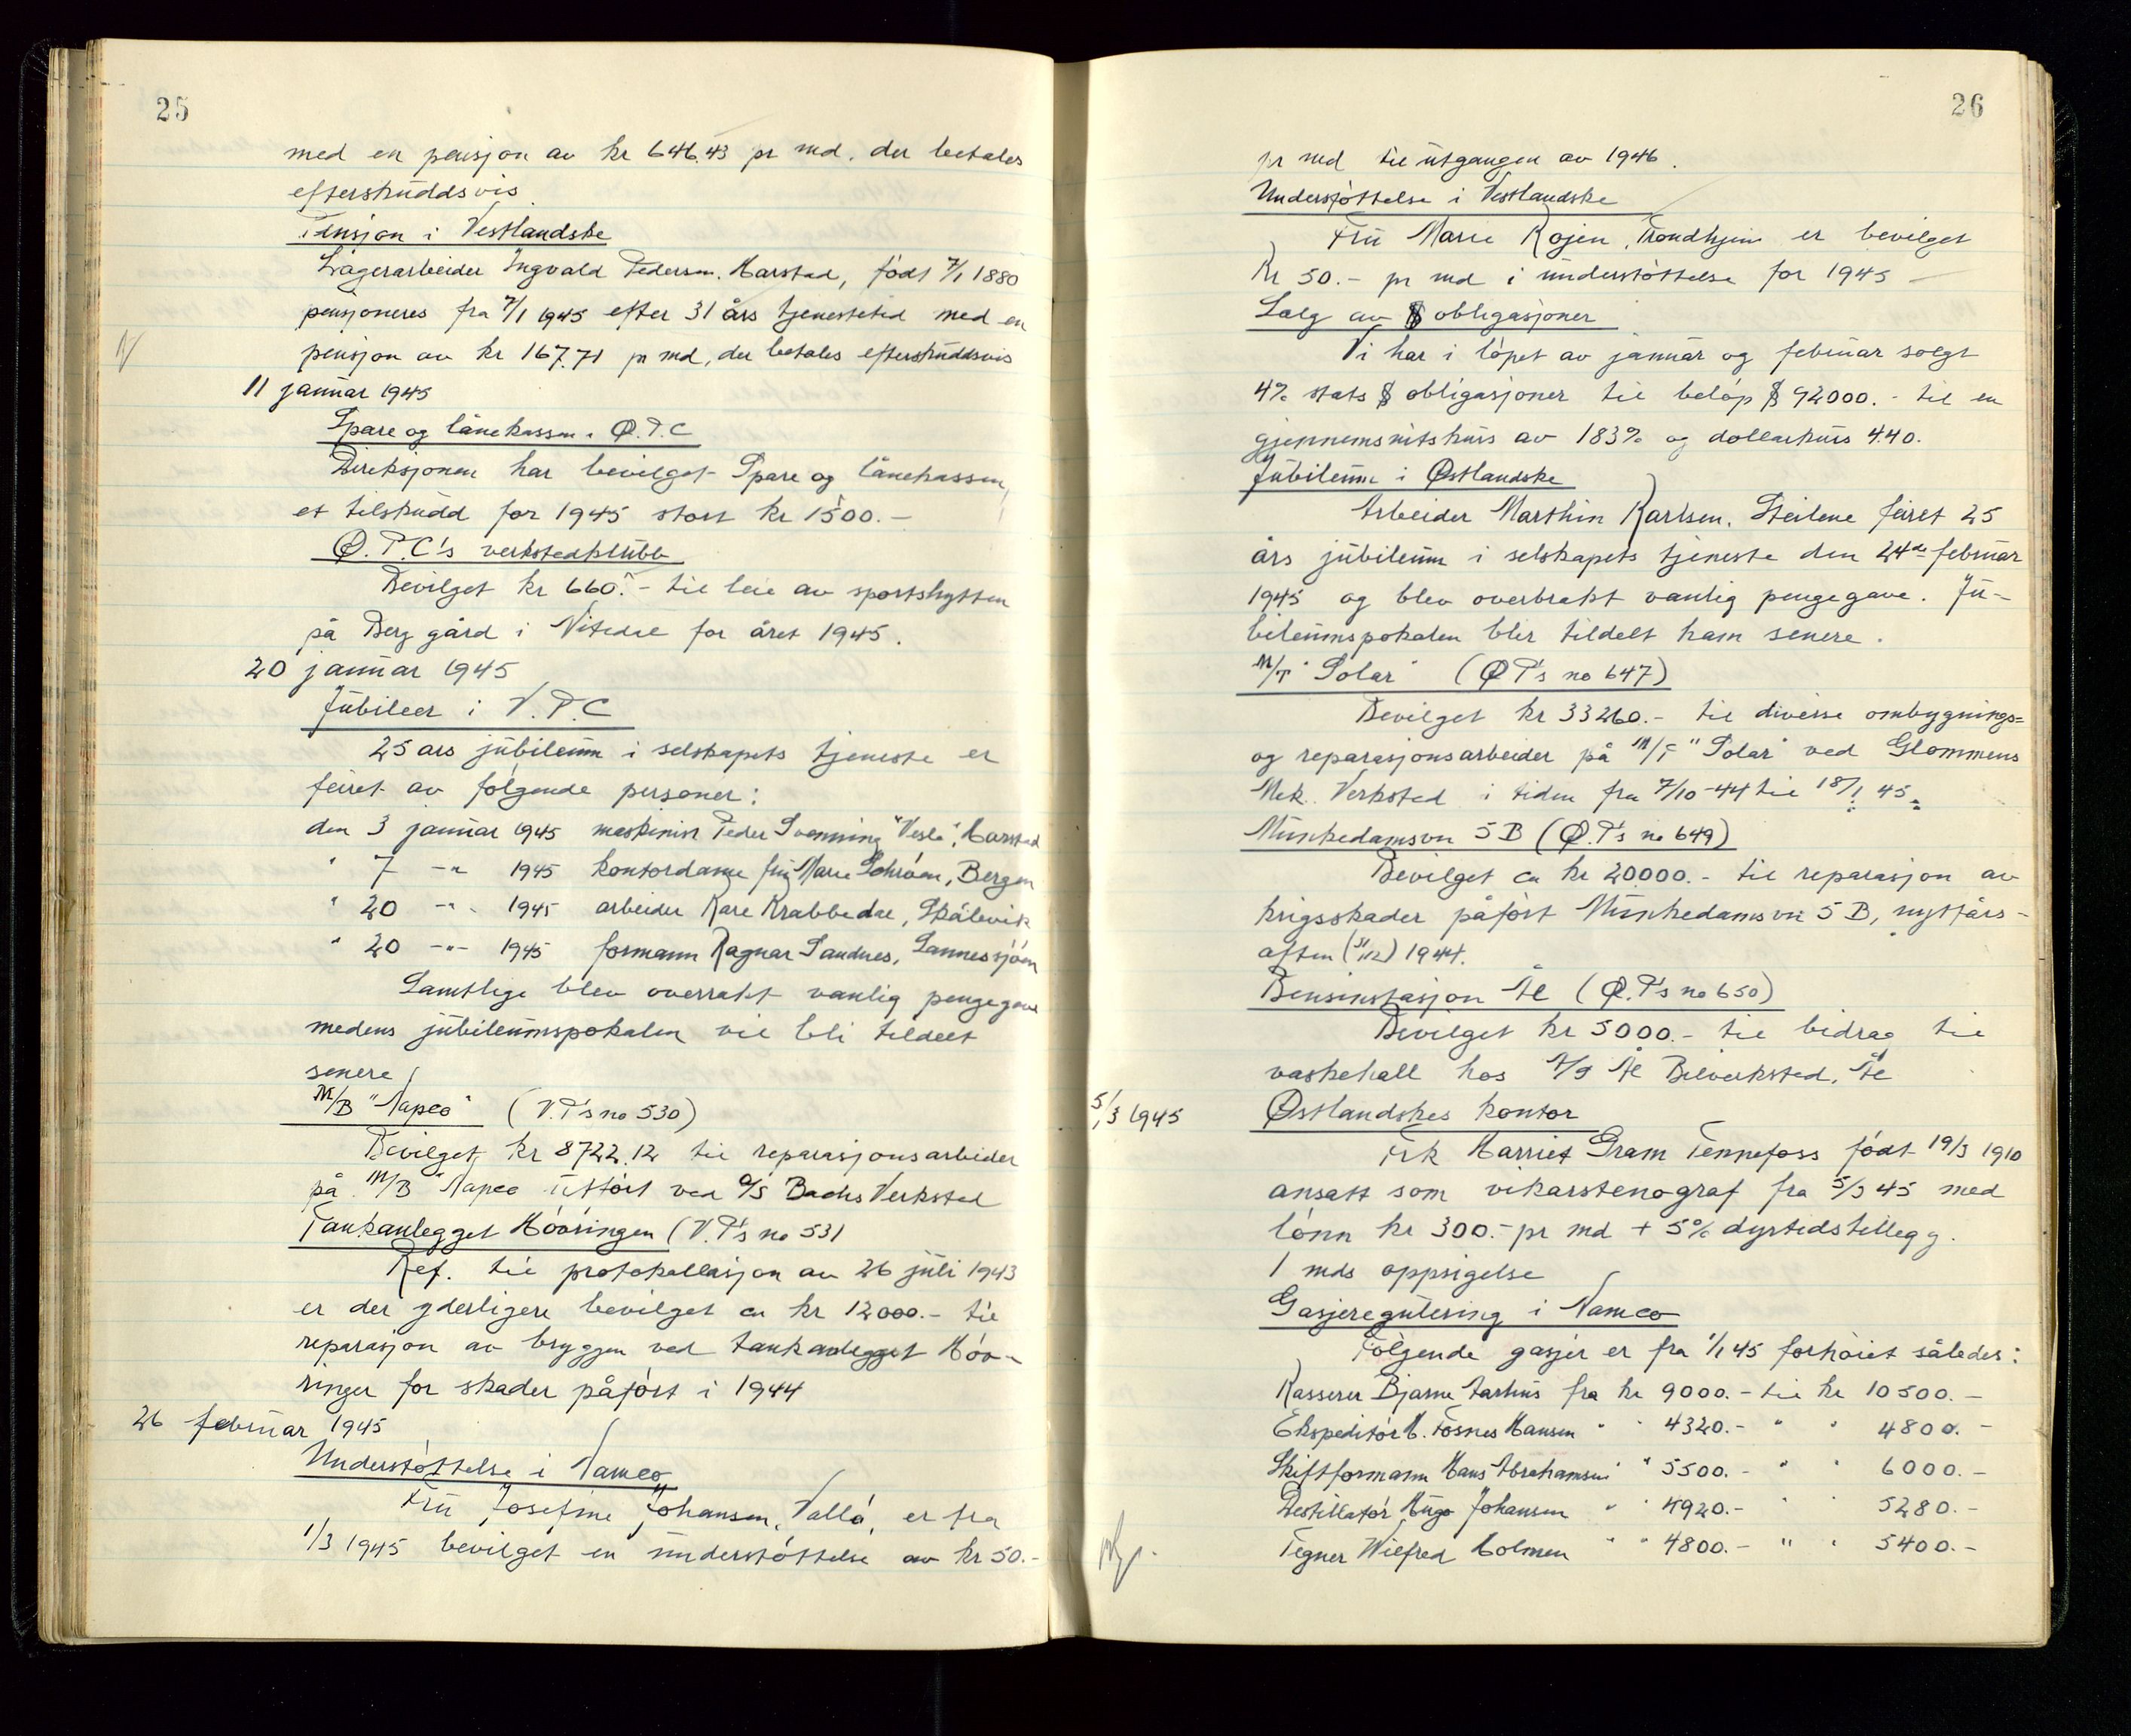 25
med en pensjon av kr 646.43 pr md. der betales
efterskuddsvis
Pensjon i Vestlandske
Lagerarbeider Ingvald Pedersen. Harstad, født 7/1 1880
pensjoneres fra 7/1 1945 efter 31 års tjenestetid med en
pensjon av kr 167.71 pr md, der betales efterskuddsvis
11 januar 1945
Spare og lånekassen i Ø.P.C
Direksjonen har bevilget Spare og lånekassen,
et tilskudd for 1945 stort kr 1500.-
Ø.P.C's verkstedklubb
Bevilget kr 660.- til leie av sportshytten
på Berg gård i Nitedal for året 1945.
20 januar 1945
Jubileer i V.P.C
25 års jubileum i selskapets tjeneste er
feiret av følgende personer:
den 3 januar 1945 maskinist Peder Svenning "Vesla", Harstad
" 7 -"- 1945 kontordame frk Marie Schrøen, Bergen
" 20 -"- 1945 arbeider Kare Krabbedal, Skålevik
" 20 -"- 1945 formann Ragnar Sandnes, Sannessjøen
Samtlige blev overrakt vanlig pengegave
medens jubileumspokalen vil bli tildelt
senere
M/B "Napco" (V.P's no 530)
Bevilget kr 8722.12 til reparasjonsarbeider
på M/B Napco utført ved A/S Bachs Verksted
Tankanlegget Høvringen (V.P's no 531
Ref. til protokollasjon av 26 juli 1943
er der yderligere bevilget ca kr 12000.- til
reparasjon av bryggen ved tankanlegget Høv-
ringen for skader påført i 1944
26 februar 1945
Understøttelse i Namco
Fru Josefine Johansen, Vallø, er fra
1/3 1945 bevilget en understøttelse av kr 50.-
26
pr md til utgangen av 1946.
Understøttelse i Vestlandske
Fru Marie Rojen, Trondhjem er bevilget
Kr 50.- pr md i understøttelse for 1945
Salg av $ obligasjoner
Vi har i løpet av januar og februar solgt
4% stats $ obligasjoner til beløp $ 92000.- til en
gjennemsnitskurs av 183% og dollarkurs 4.40.
Jubileum i Østlandske
Arbeider Marthin Karlsen. Steilene feiret 25
års jubileum i selskapets tjeneste den 24de februar
1945 og blev overbrakt vanlig pengegave. Ju-
bileumspokalen blir tildelt ham senere.
M/T "Solar" (Ø P's no 647)
Bevilget kr 33260.- til diverse ombygnings=
og reparasjonsarbeider på M/T "Solar" ved Glommens
Mek. Verksted i tiden fra 7/10-44 til 18/1 45
Munkedamsvn 5 B (Ø.P's no 649)
Bevilget ca kr 20000.- til reparasjon av
krigsskader påført Munkedamsvn 5 B, nyttårs-
aften (31/12) 1944.
Bensinstasjon Ål (Ø.P's no 650)
Bevilget kr 5000.- til bidrag til
vaskehall hos A/S Ål Bilverksted, Ål
5/3 1945
Østlandskes kontor
Frk Harriet Gram Tennefoss født 19/3 1910
ansatt som vikarstenograf fra 5/3 45 med
lønn kr 300.- pr md + 5% dyrtidstillegg.
1 mds oppsigelse
Gasjeregulering i Namco
Følgende gasjer er fra 1/1 45 forhøiet således:
Kasserer Bjarne Aarhus fra kr 9000.- til kr 10500.-
Ekspeditør H. Fosnes Hansen " " 4320.- " " 4800.-
Skiftformann Hans Abrahamsen " 5500.- " " 6000.-
Destillatør Hugo Johansen " " 4920.- " " 5280.-
Tegner Wilfred Holmen " " 4800.- " " 5400.-